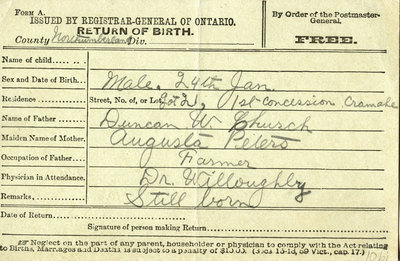 FORM A.
ISSUED BY REGISTRAR-GENERAL OF ONTARIO.
RETURN OF BIRTH.
County Northumberland Div.
By Order of the Postmaster-General,
FREE.
Name of child
Sex and Date of Birth.... Male. 24th Jan.
Residence Street, No. of, or Lot Lot 21, 1st Concession Cramahe
Name of Father Duncan W Church
Maiden Name of Mother, Augusta Peters
Occupation of Father.... Farmer
Physician in Attendance. Dr. Willoughby
Remarks Still born
Date of Return
Signature of person making Return
Neglect on the part of any parent, householder or physician to comply with the Act relating
to Births, Marriages and Deaths is subject to a penalty of $10.00. (Secs 13-18, 59 Vict., cap. 17.)